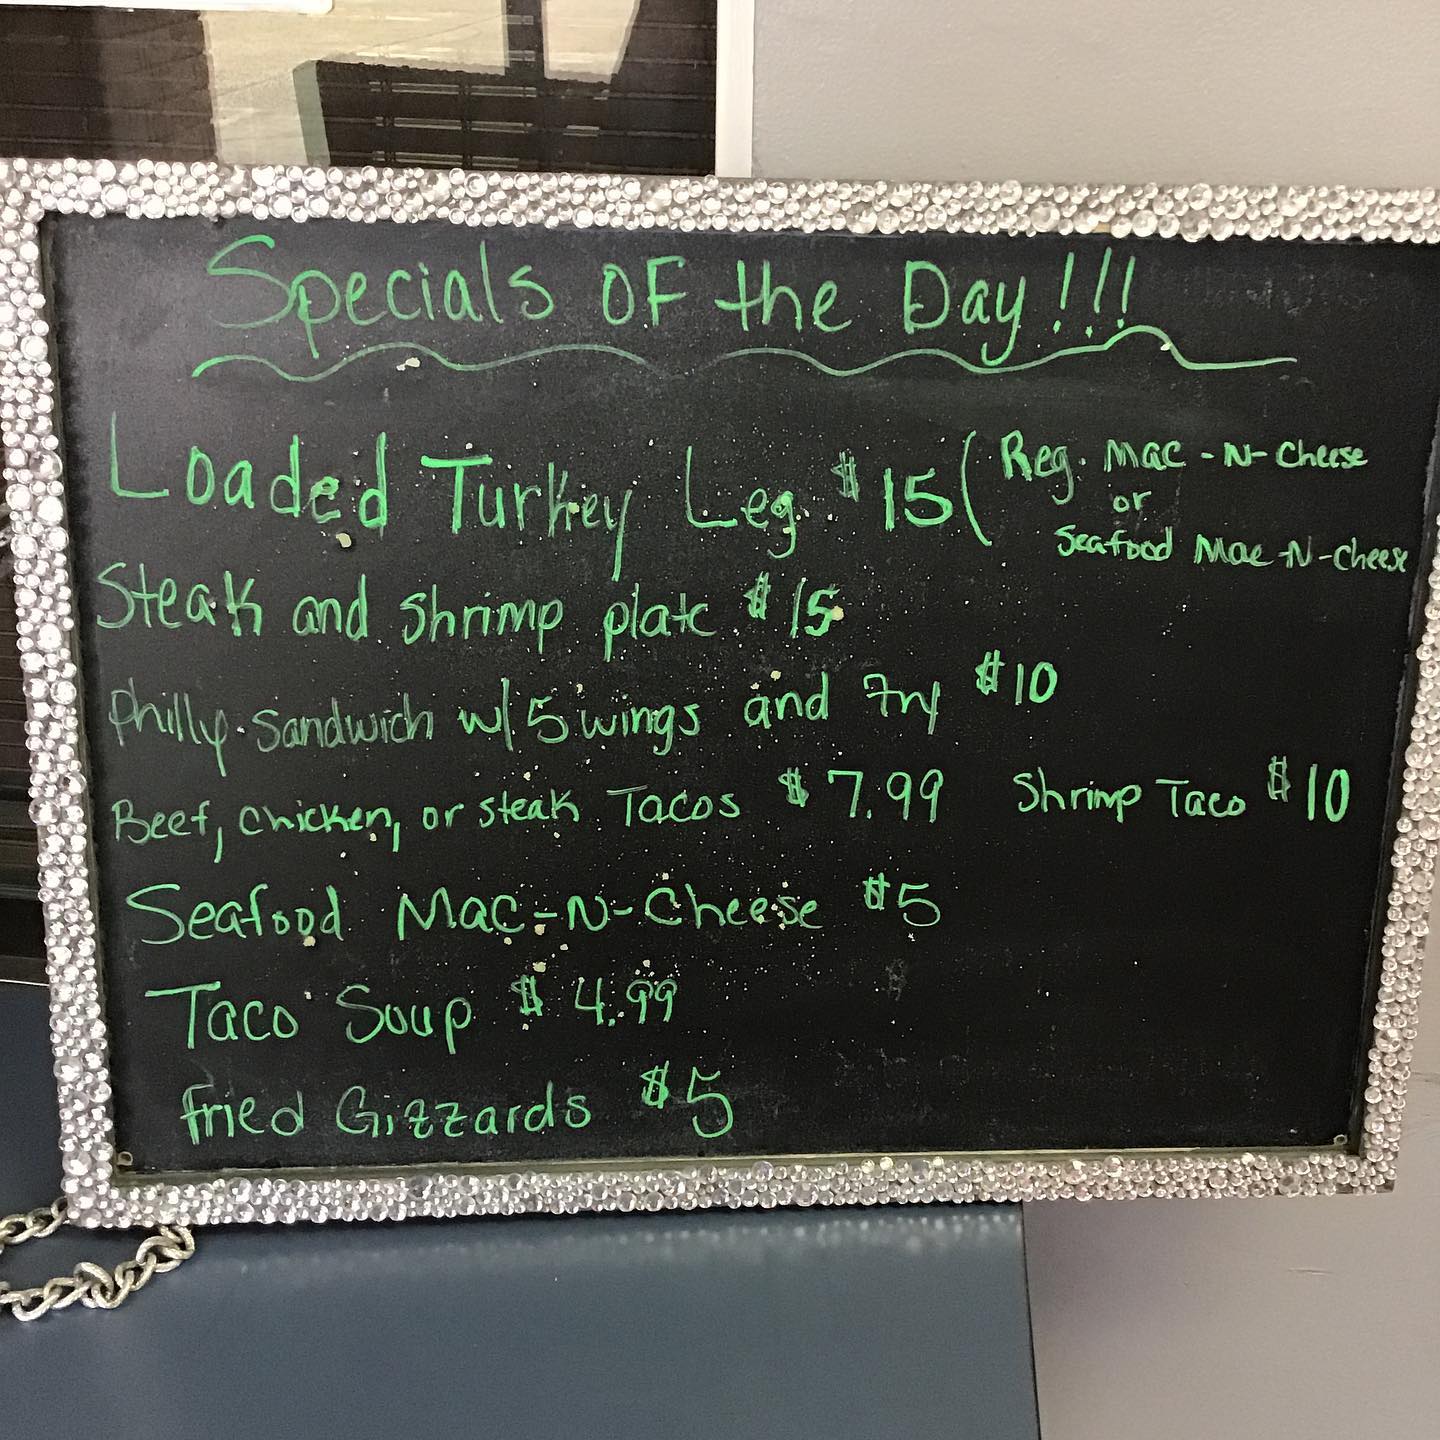 Specials OF the Day!!!
Loaded Turkey Leg $15 ( Reg. Mac-N-Cheese
or
Seafood Mac-N-Cheese
Steak and Shrimp plate $15
Philly Sandwich w/ 5 wings and fry $10
Beef, chicken, or steak Tacos $7.99 Shrimp Taco $10
Seafood Mac-N-Cheese $5
Taco Soup $4.99
fried Gizzards $5